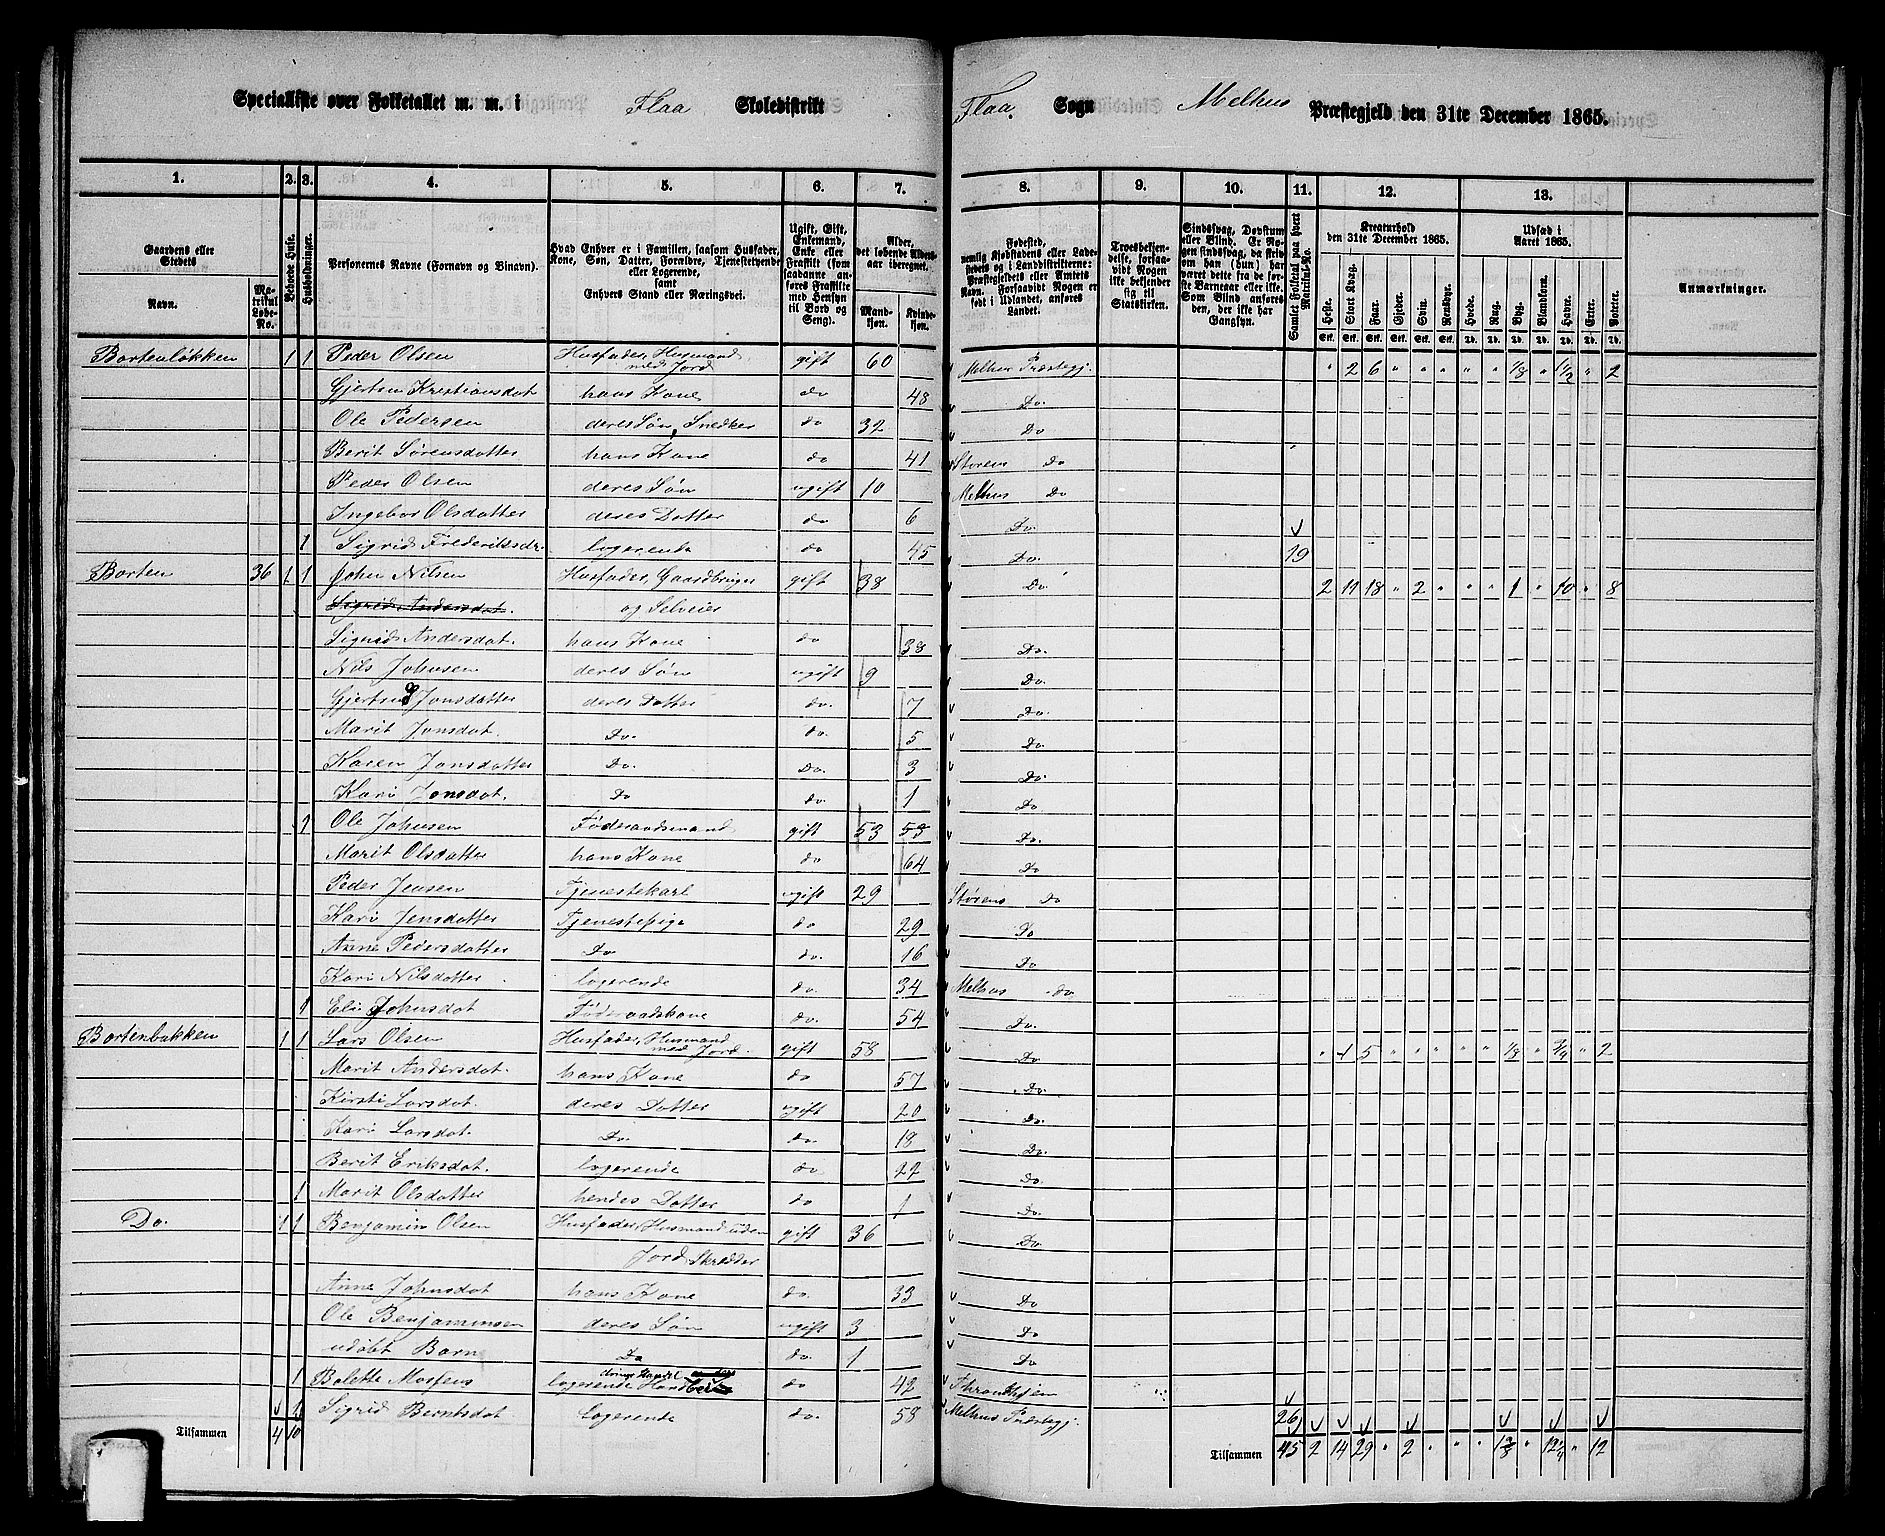 Specialliste over Folketallet m. m. i Flaa Skoledistrikt Flaa. Sogn Melhus Præstegjeld den 31te December 1865.
1. 2. 3. 4. 5. 6. 7. 8. 9. 10. 11. 12. 13.
Gaardens eller Stedets Navn. Matrikul Løbe-No. Beboede Huse. Husholdninger. Personernes Navne (Fornavn og Binavn). Hvad Enhver er i Familien, saasom Husfader, Kone, Søn, Datter, Forældre, Tjenestetyende eller Logerende, samt Enhvers Stand eller Næringsvei. Ugift, Gift, Enkemand, Enke eller Fraskilt (som saadanne anføres Fraskilte med Hensyn til Bord og Seng). Alder, det løbende Aldersaar iberegnet. Mandkjøn. Kvindekjøn. Fødested, nemlig Kjøbstadens eller Ladestedets og i Landdistrikterne: Præstegjeldets eller Amtets Navn. Forsaavidt Nogen er født i Udlandet, anføres Landet. Troesbekjendelse, forsaavidt Nogen ikke bekjender sig til Statskirken. Sindssvag, Døvstum eller Blind. Er Nogen sindssvag, da skrives om han (hun) har været dette fra de første Barneaar eller ikke. Som Blind anføres den, der ikke har Gangsyn. Samlet Folketal paa hvert Matrikul-No. Kreaturhold den 31te December 1865. Heste. Stort Kvæg. Faar. Gjeder. Svin. Rensdyr. Udsæd i Aaret 1865. Hvede. Rug. Byg. Blandkorn. Havre. Erter. Poteter. Anmærkninger.
Bortenløkken 1 1 Peder Olsen Husfader, Husmand med Jord gift 60 Melhus Præstegj. " 2 6 " " " " " 1/8 " 1 1/2 " 2
Gjertru Kristiansdat hans Kone do 48 Do.
Ole Pedersen deres Søn, Snedker do 32 Do
Berit Sørensdatter hans Kone do 41 Størens Do
Peder Olsen deres Søn ugift 10 Melhus Do
Ingebor Olsdatter deres Datter do 6 Do.
1 Sigrid Frederiksdr. logerende do 45 Do. 19
Borten 36 1 1 John Nilsen Husfader, Gaardbruger gift 38 Do 2 11 18 " 2 " " " 1 " 10 " 8
Sigrid Andersdat. og Selveier
Sigrid Andersdat. hans Kone do 38 Do.
Nils Johnsen deres Søn ugift 9 Do.
Gjertru Jonsdatter deres Datter do. 7 Do.
Marit Jonsdat. Do. do. 5 Do.
Karen Jonsdatter Do. do. 3 Do.
Kari Jonsdat. Do do. 1 Do
1 Ole Johnsen Føderaadsmand gift 53 53 Do.
Marit Olsdatter hans Kone do 64 Do
Peder Jensen Tjenestekarl ugift 29 Størens Do
Kari Jensdatter Tjenestepige do 29 Do
Anne Pedersdatter Do do. 16 Do
Kari Nilsdatter logerende do. 34 Melhus do
1 Eli Johnsdat Føderaadskone do. 54 Do.
Bortenbakken 1 1 Lars Olsen Husfader, Husmand med Jord. gift 58 Do " 1 5 " " " " " 1/8 " 3/4 " 2
Marit Andersdat. hans Kone do 57 Do.
Kirsti Larsdat. deres Datter ugift 20 Do.
Kari Larsdat. Do. do. 18 Do.
Berit Eriksdat. logerende do 22 Do
1 Marit Olsdatter hendes Datter do 1 Do.
Do. 1 1 Benjamin Olsen Husfader, Husmand uden gift 36 Do
Jord, Skrædder
Anne Johnsdat hans Kone do. 33 Do
Ole Benjaminsen deres Søn ugift 3 Do
udøbt Barn Do do. 1 Do
1 Bolette logerende do 42 Thronhjem
1 Sigrid Berntsdat Logerende do. 58 Melhus Præstegj. 26
Tilsammen 4 10 Tilsammen 45 2 14 29 " 2 " " " 1 3/8 " 12 1/4 " 12